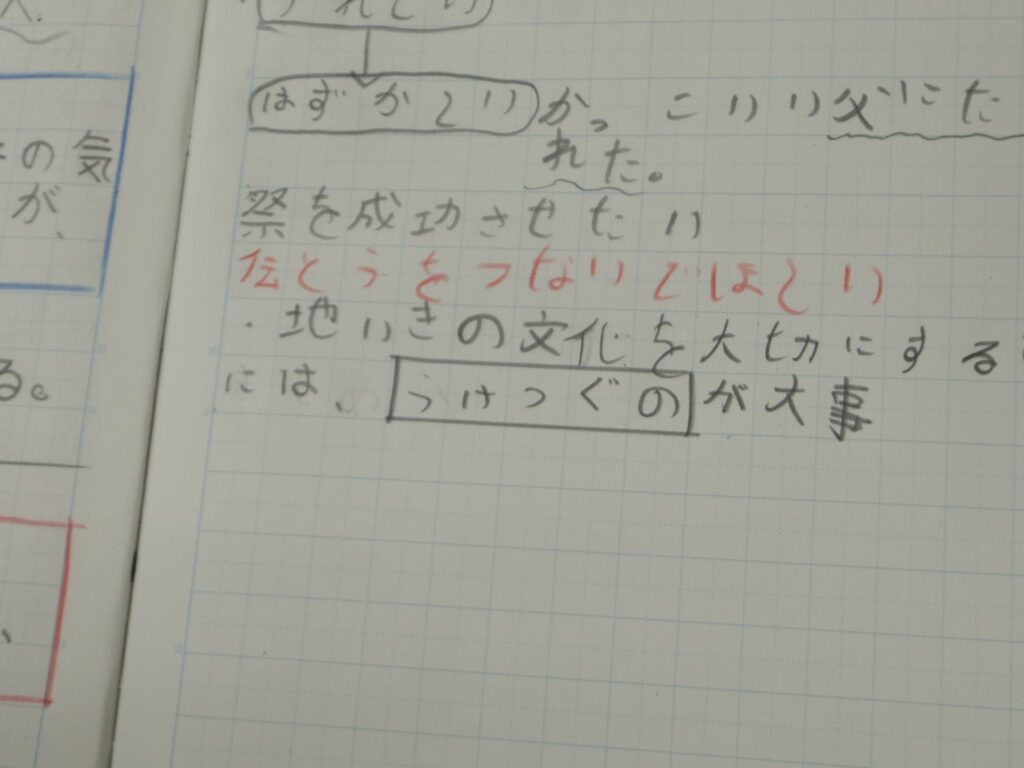 の気
が、
る。
はずかしい かっこいい父にた
れた。
祭を成功させたい
伝とうをつないでほしい
・地いきの文化を大切にする
には、うけつぐのが大事